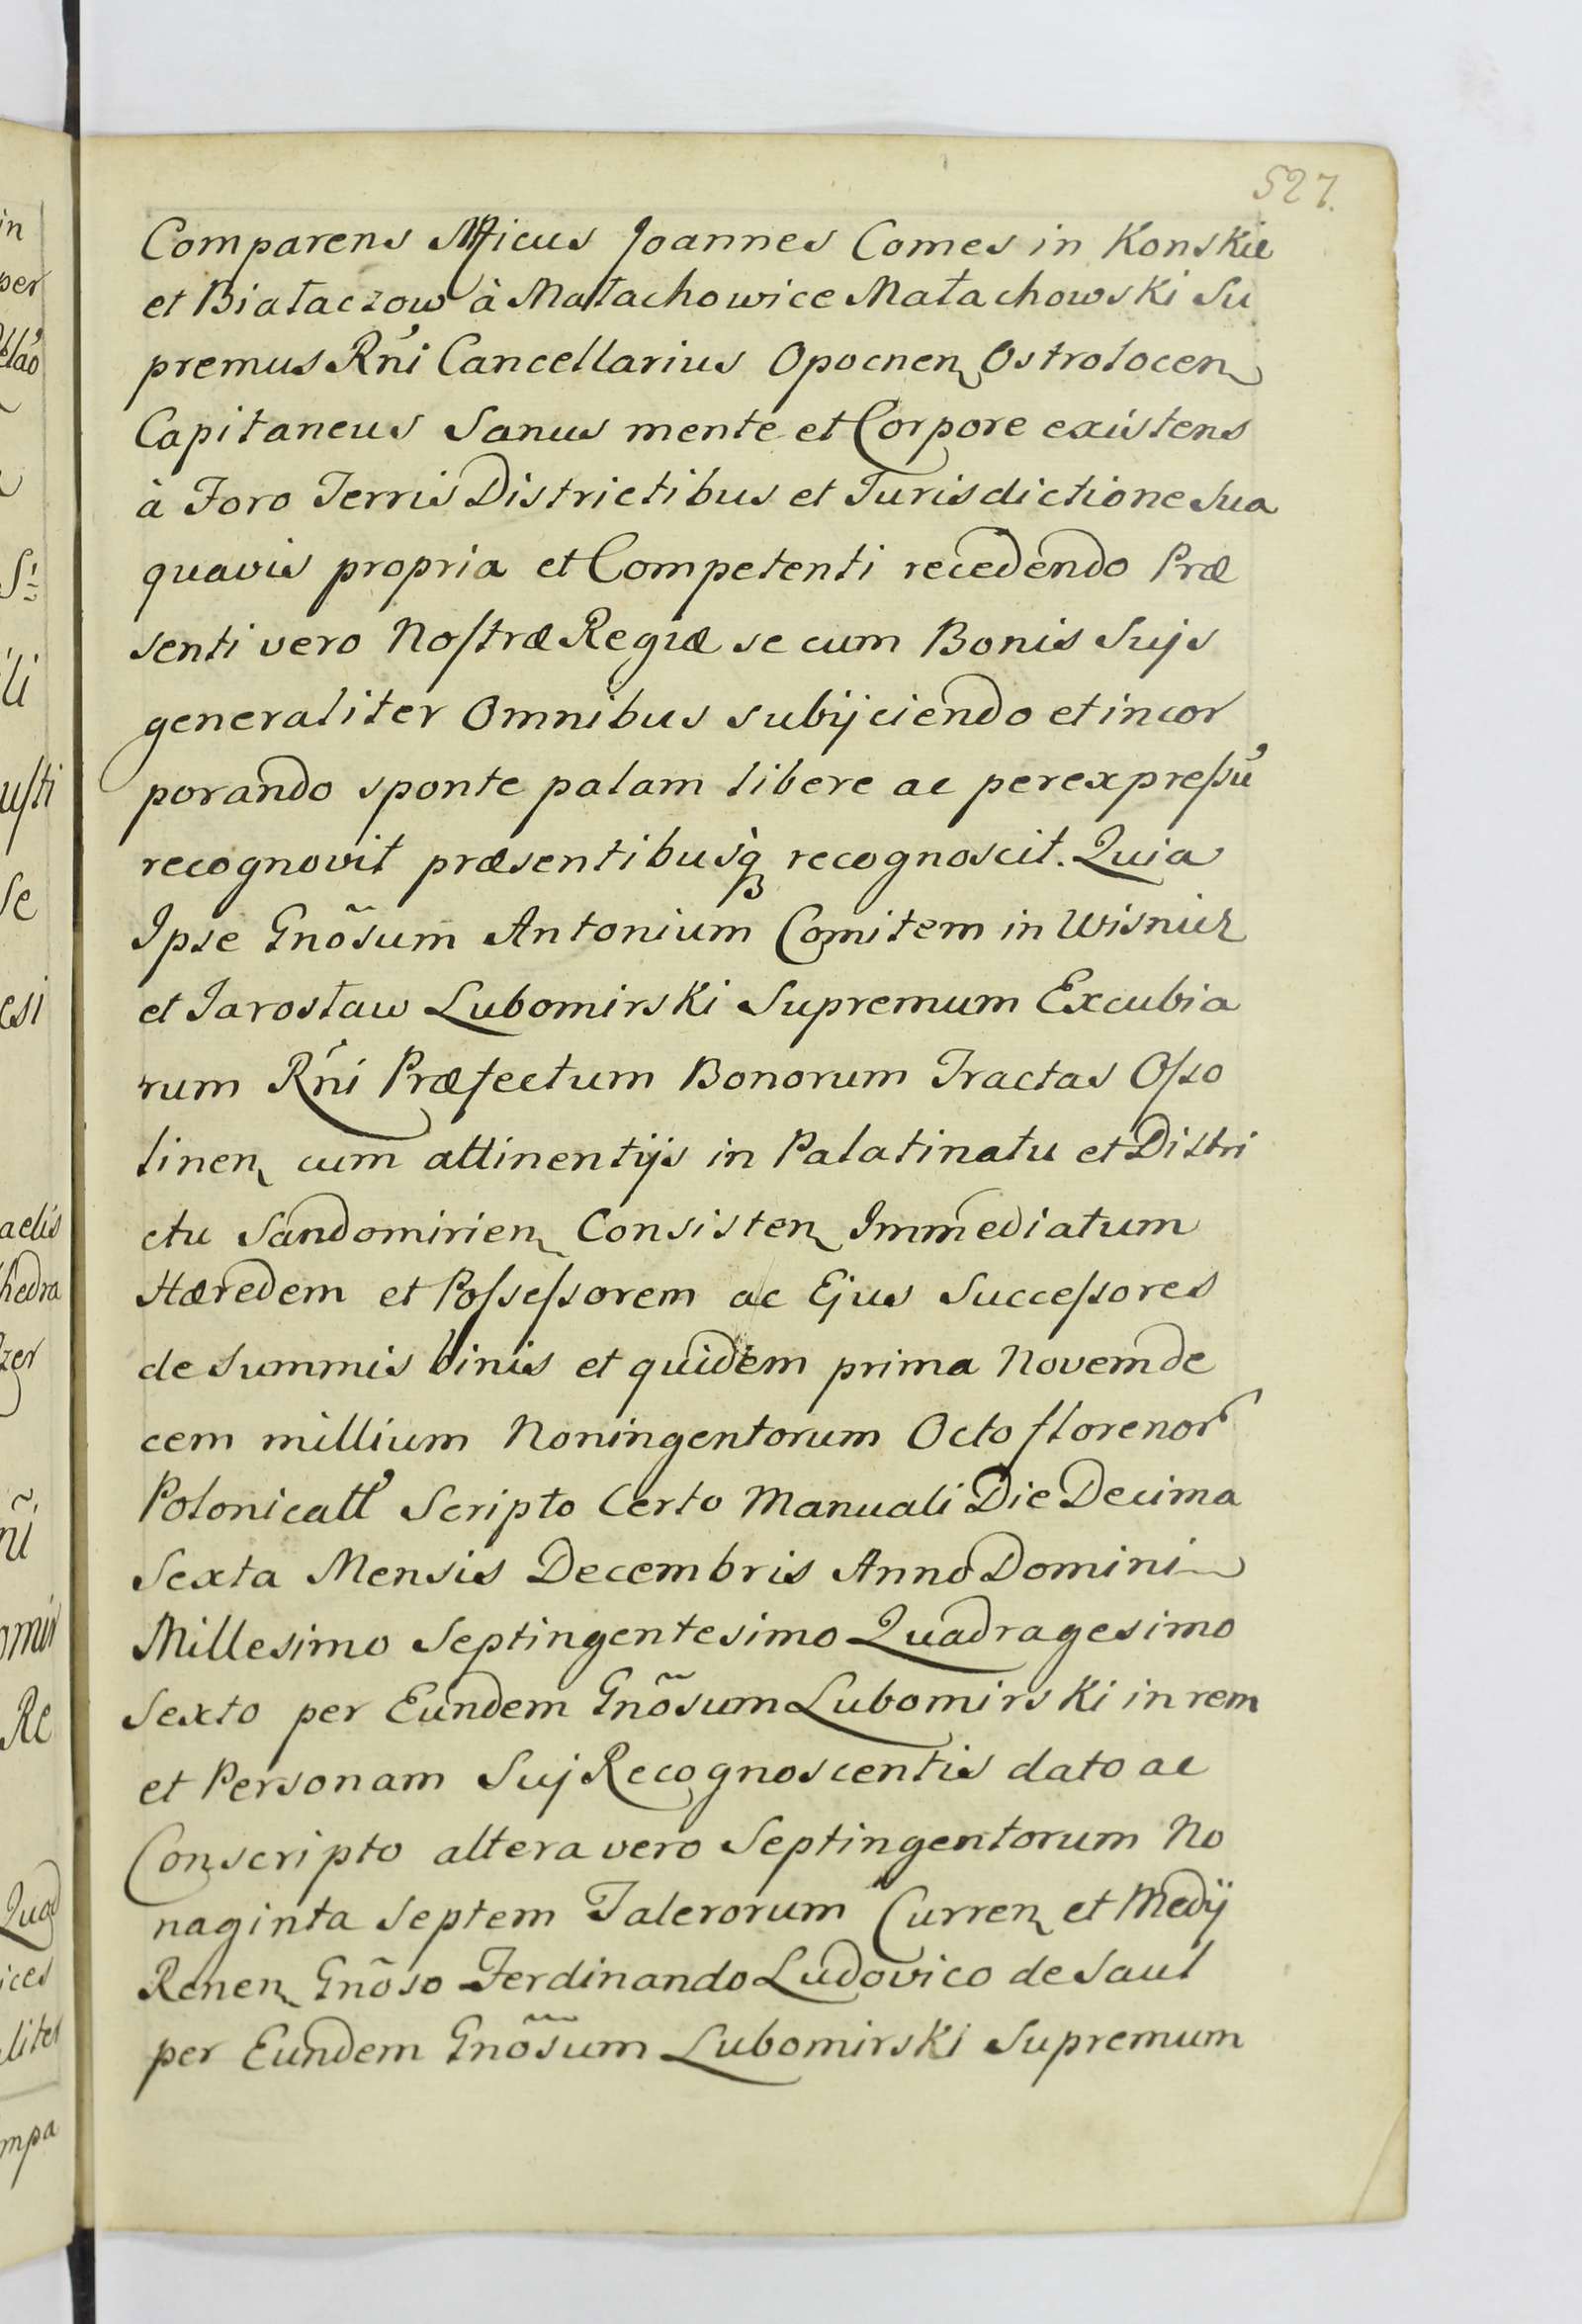 527.
Comparens Mficus Joannes Comes in Konskie
et Białaczow à Małachowice Małachowski Su
premus Rñi Cancellarius Opocnen Ostrołocen
Capitaneus Sanus mente et Corpore existens
à Foro Terris Districtibus et Jurisdictione Sua
quavis propria et Competenti recedendo Præ
senti vero Nostræ Regiæ se cum Bonis Suijs
generaliter Omnibus subijciendo et incor
porando sponte palam libere ac per expressũ
recognovit præsentibusq recognoscit. Quia
Ipse Gnõsum Antonium Comitem in Wisnicz
et Jarosław Lubomirski Supremum Excubia
rum Rñi Præfectum Bonorum Tractas Osso
linen cum attinentijs in Palatinatu et Distri
ctu Sandomirien Consisten Immediatum
Hæredem et Possessorem ac Ejus Successores
de Summis binis et quidem prima Novemde
cem millium Noningentorum Octo florenor
Polonicall Scripto Certo Manuali Die Decima
Sexta Mensis Decembris Anno Domini
Millesimo Septingentesimo Quadragesimo
Sexto per Eundem Gnõsum Lubomirski in rem
et Personam Suj Recognoscentis dato ac
Conscripto altera vero Septingentorum No
naginta Septem Talerorum Curren et Medij
Renen Gnõso Ferdinando Ludovico de Saul
per Eundem Gnõsum Lubomirski Supremum